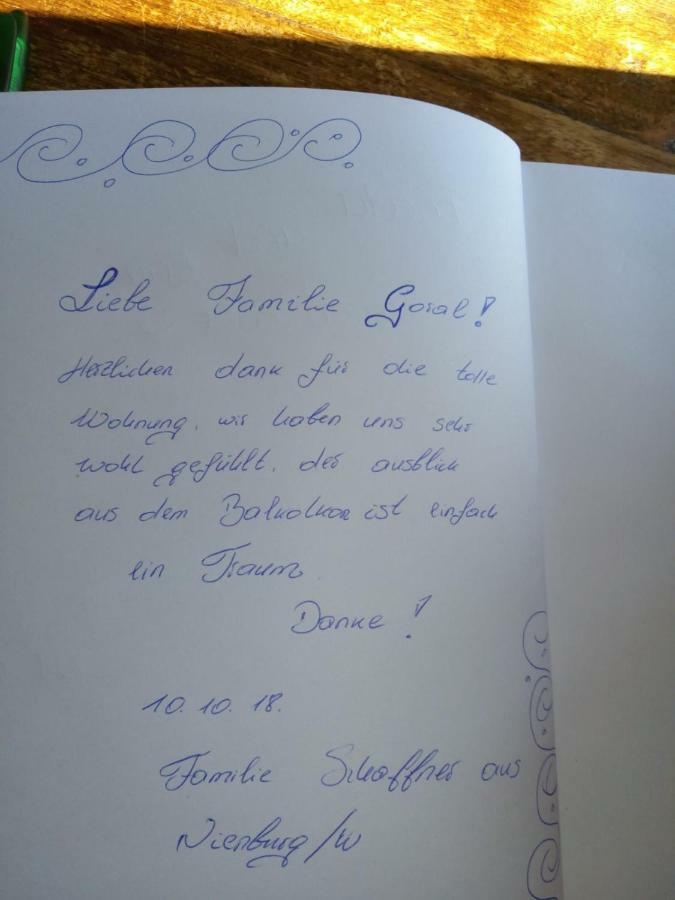 Liebe Familie Goral!
Herzlichen dank für die tolle
Wohnung, wir haben uns sehr
wohl gefühlt. der ausblick
aus dem Balkolkon ist einfach
ein Traum
Danke!
10.10.18.
Familie Schaffner aus
Nienburg/W